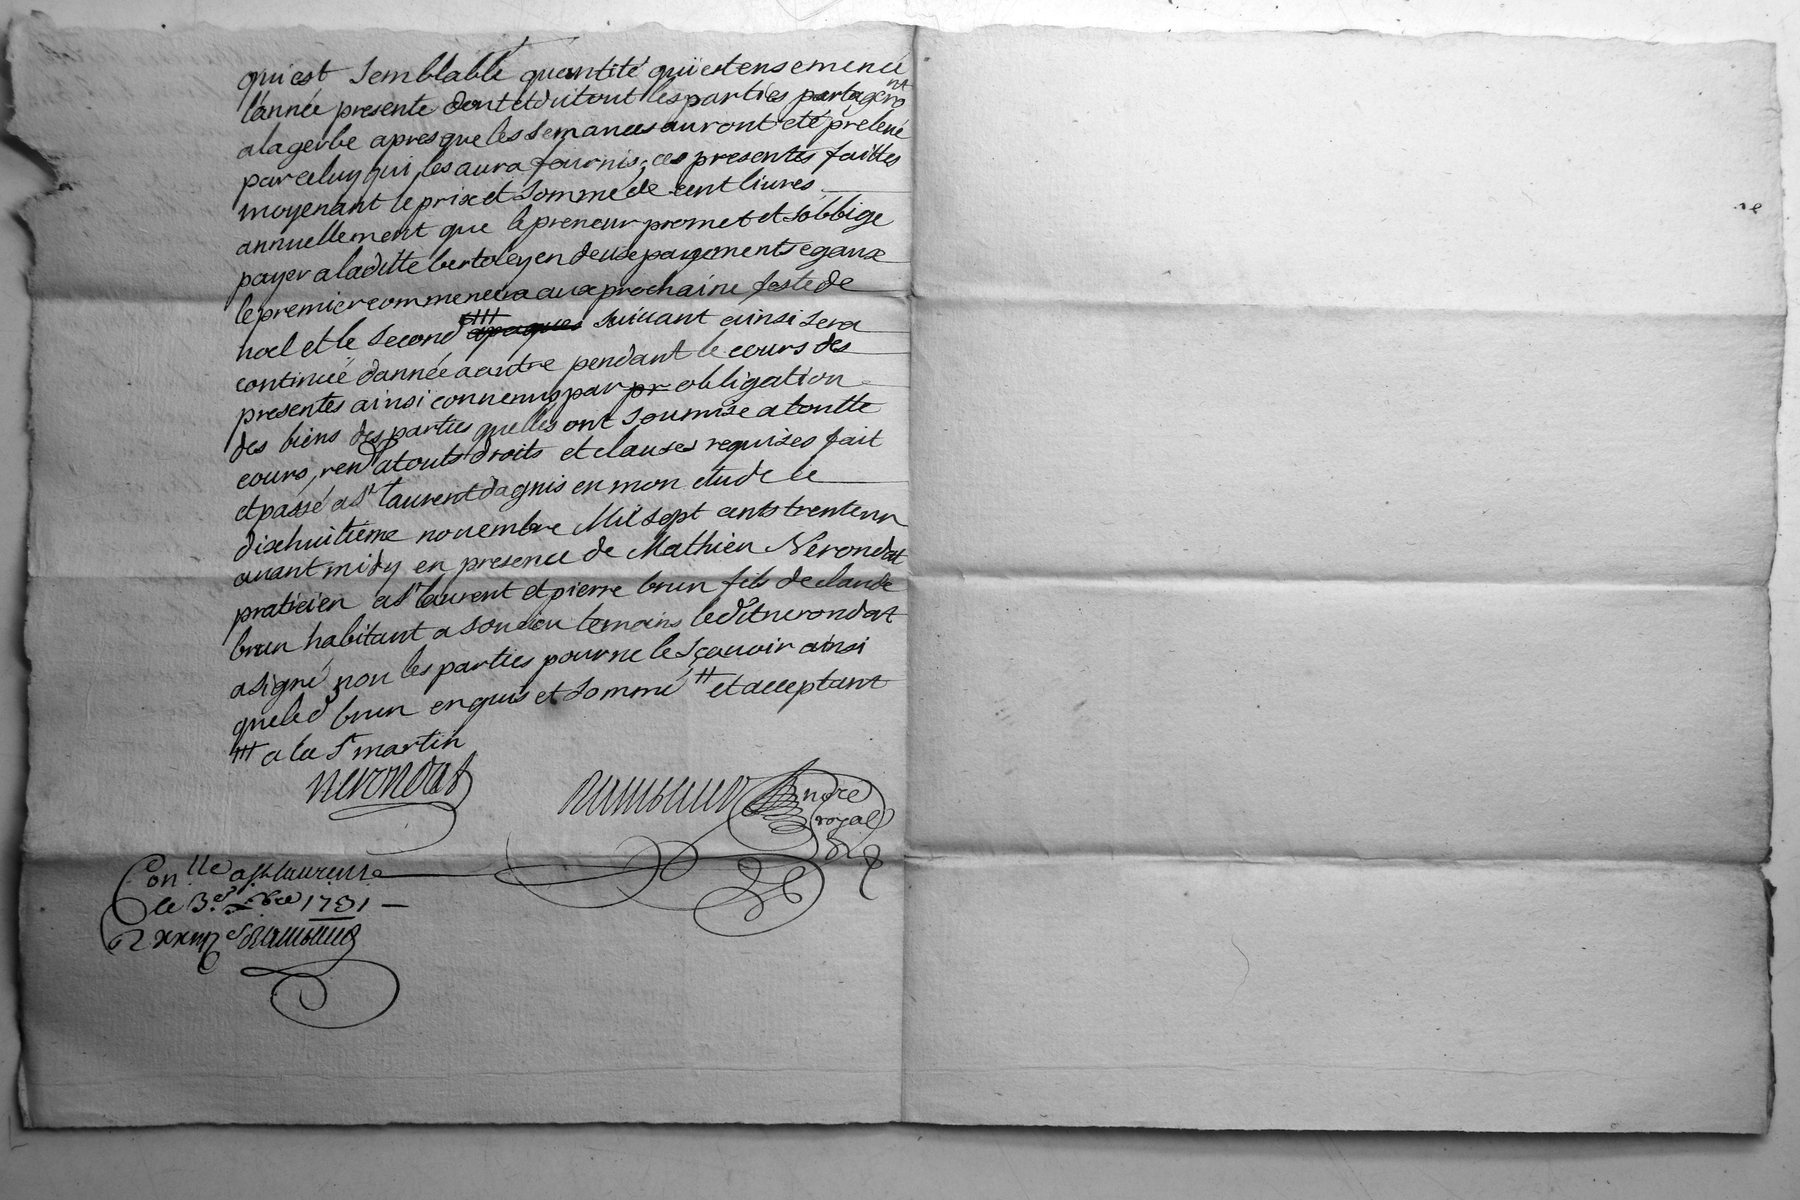 qui est semblable quantité qui est ensemencé
l'année presente dont et du tout les parties partagero nt
a la gerbe apres que les semances auront eté prelevé
par celuy qui les aura fournis, ces presentes faittes
moyenant le prix et somme de cent livres
annuellement que le preneur promet et s'obbige
payer a laditte bertoley en deux payements egaux
le premier commencera aux prochaine feste de
noel et le second #### apaques suivant ainsi sera
continué dannée a autre pendant le cours des
presentes ainsi convenus par pr obligation
des biens des parties quelles ont soumise a toutte
cours, ren d a touts droits et clauses requises fait
et passé a st laurent dagnis en mon etude le
dixhuitieme novembre Mil sept cents trenteun
avant midy en presence de Mathieu Nérondat
praticien a st laurent et pierre brun fils de claude
brun habitant a soucieu temoins ledit nerondat
a signé non les parties pour ne le sçavoir ainsi
que led brun enquis et sommé # et acceptant
### a la st martin
nerondat
not re
royal
Con lle a st laurent
le 3e xbre 1731